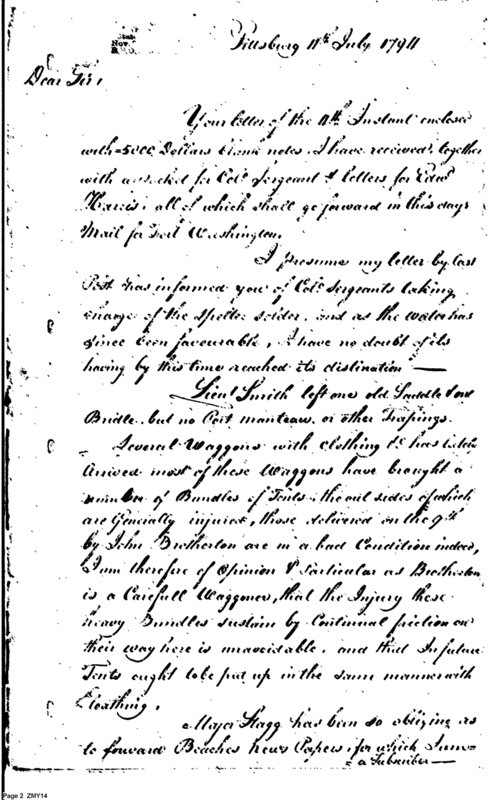 Pittsburg 11th July 1794
Dear Sir,
Your letter of the 4th Instant enclosed
with 5000 Dollars bank notes I have received, together
with a packet for Colo. Sergeant & letters for Edwd
Harris; all of which shall go forward in this days
Mail for Fort Washington.
I presume my letter by last
Post has informed you of Colo. Sergeants taking
charge of the spelter solder, and as the water has
since been favourable, I have no doubt of its
having by this time reached its distination —
Lieut Smith left one old Saddle & one
Bridle, but no Port manteau, or other Trapings.
Several Waggons with clothing &c has
Arrived most of these Waggons have brought a
number of Bundles of Tents, the out sides of which
are Generally injured, those delivered on the 9th
by John Brotherton are in a bad Condition indeed,
I am therefore of Opinion & Particular as Brotherton
is a Carefull Waggoner, that the Injury these
heavy Bundles sustain by Continual friction on
their way here is unavoidable, and that In future
Tents ought to be put up in the same manner with
Cloathing.
Major Stagg has been so obliging as
to forward Beaches News Papers, for which I am
a Subscriber —
Page 2 ZMY14